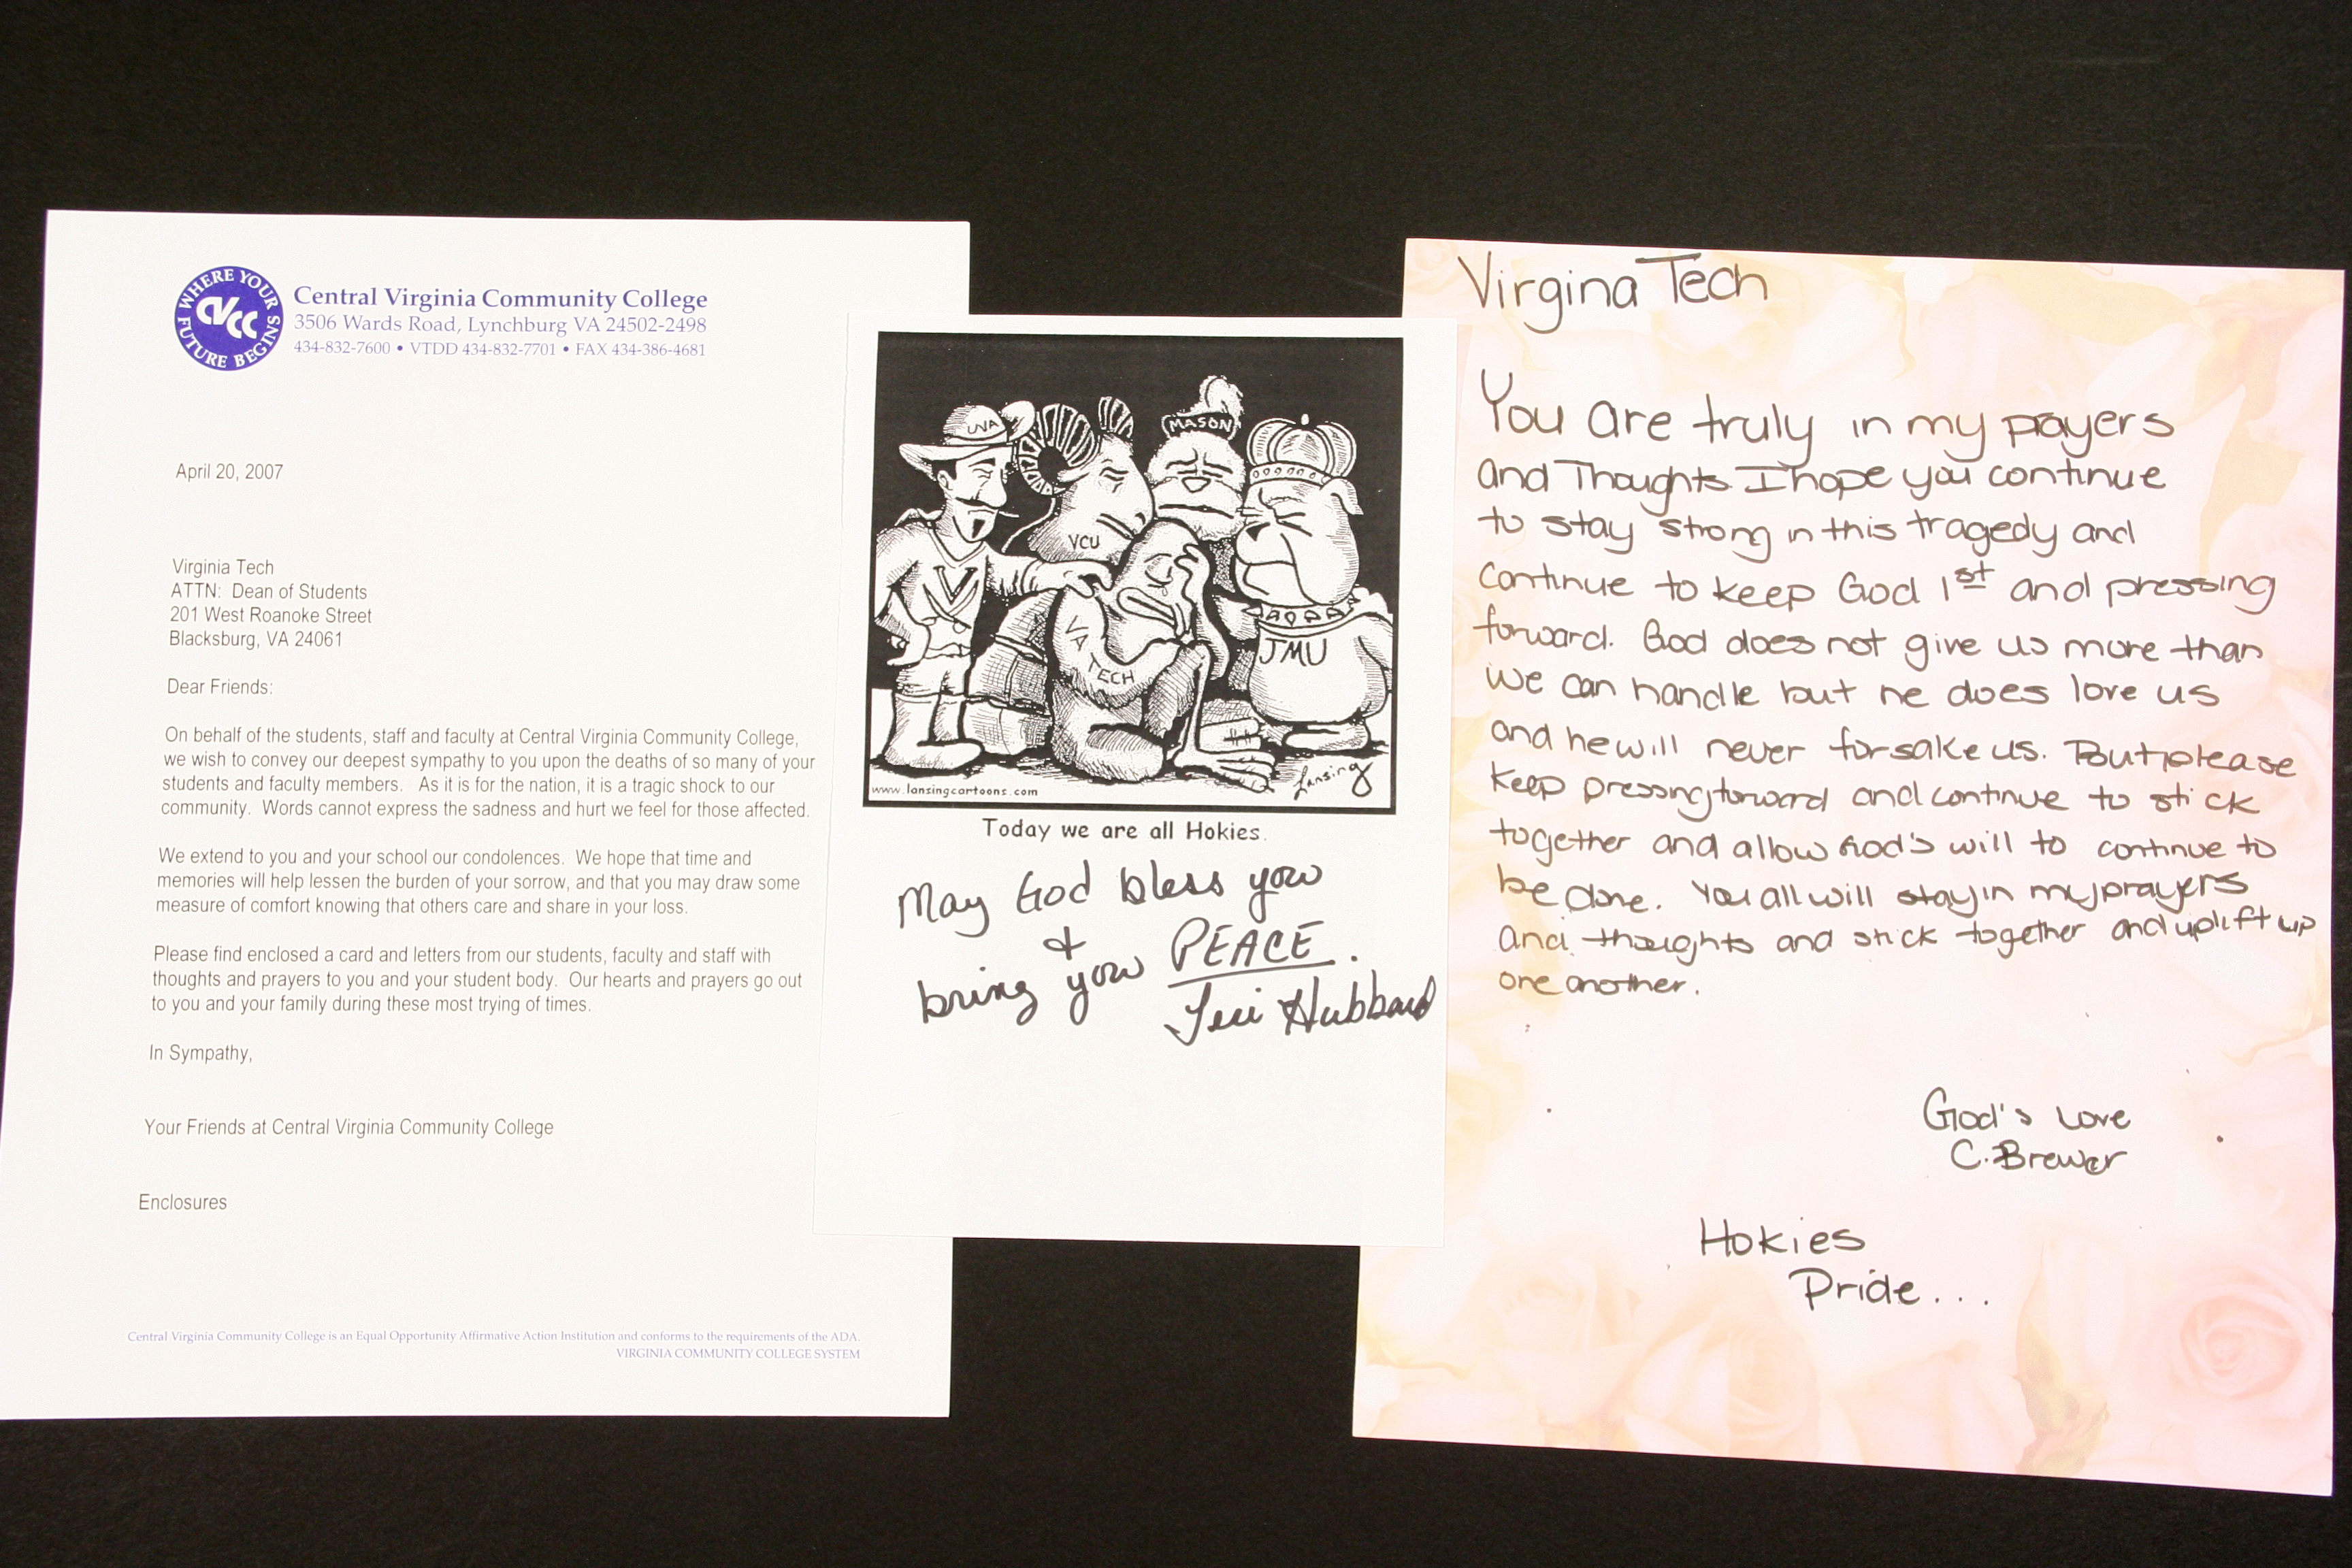 WHERE YOUR FUTURE BEGINS
CVCC
Central Virginia Community College
3506 Wards Road, Lynchburg VA 24502-2498
434-832-7600 • VTDD 434-832-7701 • FAX 434-386-4681
April 20, 2007
Virginia Tech
ATTN: Dean of Students
201 West Roanoke Street
Blacksburg, VA 24061
Dear Friends:
On behalf of the students, staff and faculty at Central Virginia Community College,
we wish to convey our deepest sympathy to you upon the deaths of so many of your
students and faculty members. As it is for the nation, it is a tragic shock to our
community. Words cannot express the sadness and hurt we feel for those affected.
We extend to you and your school our condolences. We hope that time and
memories will help lessen the burden of your sorrow, and that you may draw some
measure of comfort knowing that others care and share in your loss.
Please find enclosed a card and letters from our students, faculty and staff with
thoughts and prayers to you and your student body. Our hearts and prayers go out
to you and your family during these most trying of times.
In Sympathy,
Your Friends at Central Virginia Community College
Enclosures
Central Virginia Community College is an Equal Opportunity Affirmative Action Institution and conforms to the requirements of the ADA.
VIRGINIA COMMUNITY COLLEGE SYSTEM
UVA
MASON
VCU
V
VA TECH
JMU
www.lansingcartoons.com
Lansing
Today we are all Hokies.
May God bless you
&
bring you PEACE.
Teri Hubbard
Virgina Tech
You are truly in my prayers
and Thoughts I hope you continue
to stay strong in this tragedy and
continue to keep God 1st and pressing
forward. God does not give us more than
we can handle but he does love us
and he will never forsake us. But please
keep pressing forward and continue to stick
together and allow God's will to continue to
be done. You all will stay in my prayers
and thoughts and stick together and uplift up
one another.
God's Love
C. Brewer
Hokies
Pride...